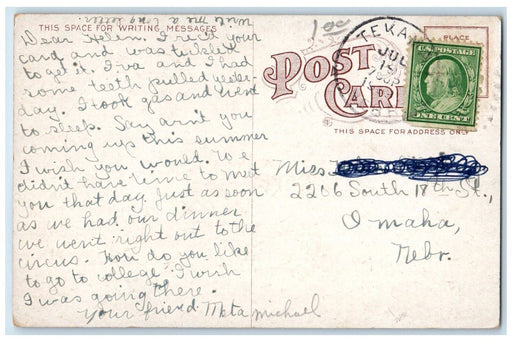 write me a long letter.
THIS SPACE FOR WRITING MESSAGES
Dear Helen: I rec'd your
card and was tickled
to get it. Iva and I had
some teeth pulled yester-
day. I took gas and went
to sleep. Say ain't you
coming up this summer
I wish you would. We
didn't have time to meet
you that day. Just as soon
as we had our dinner
we went right out to the
circus. How do you like
to go to college I wish
I was going there.
Your friend Meta Michael
10c
TEKA
JUL
PLACE
U.S. POSTAGE
ONE CENT
POST
CARD
THIS SPACE FOR ADDRESS ONLY
Miss
2206 South 18th St.,
Omaha,
Nebr.